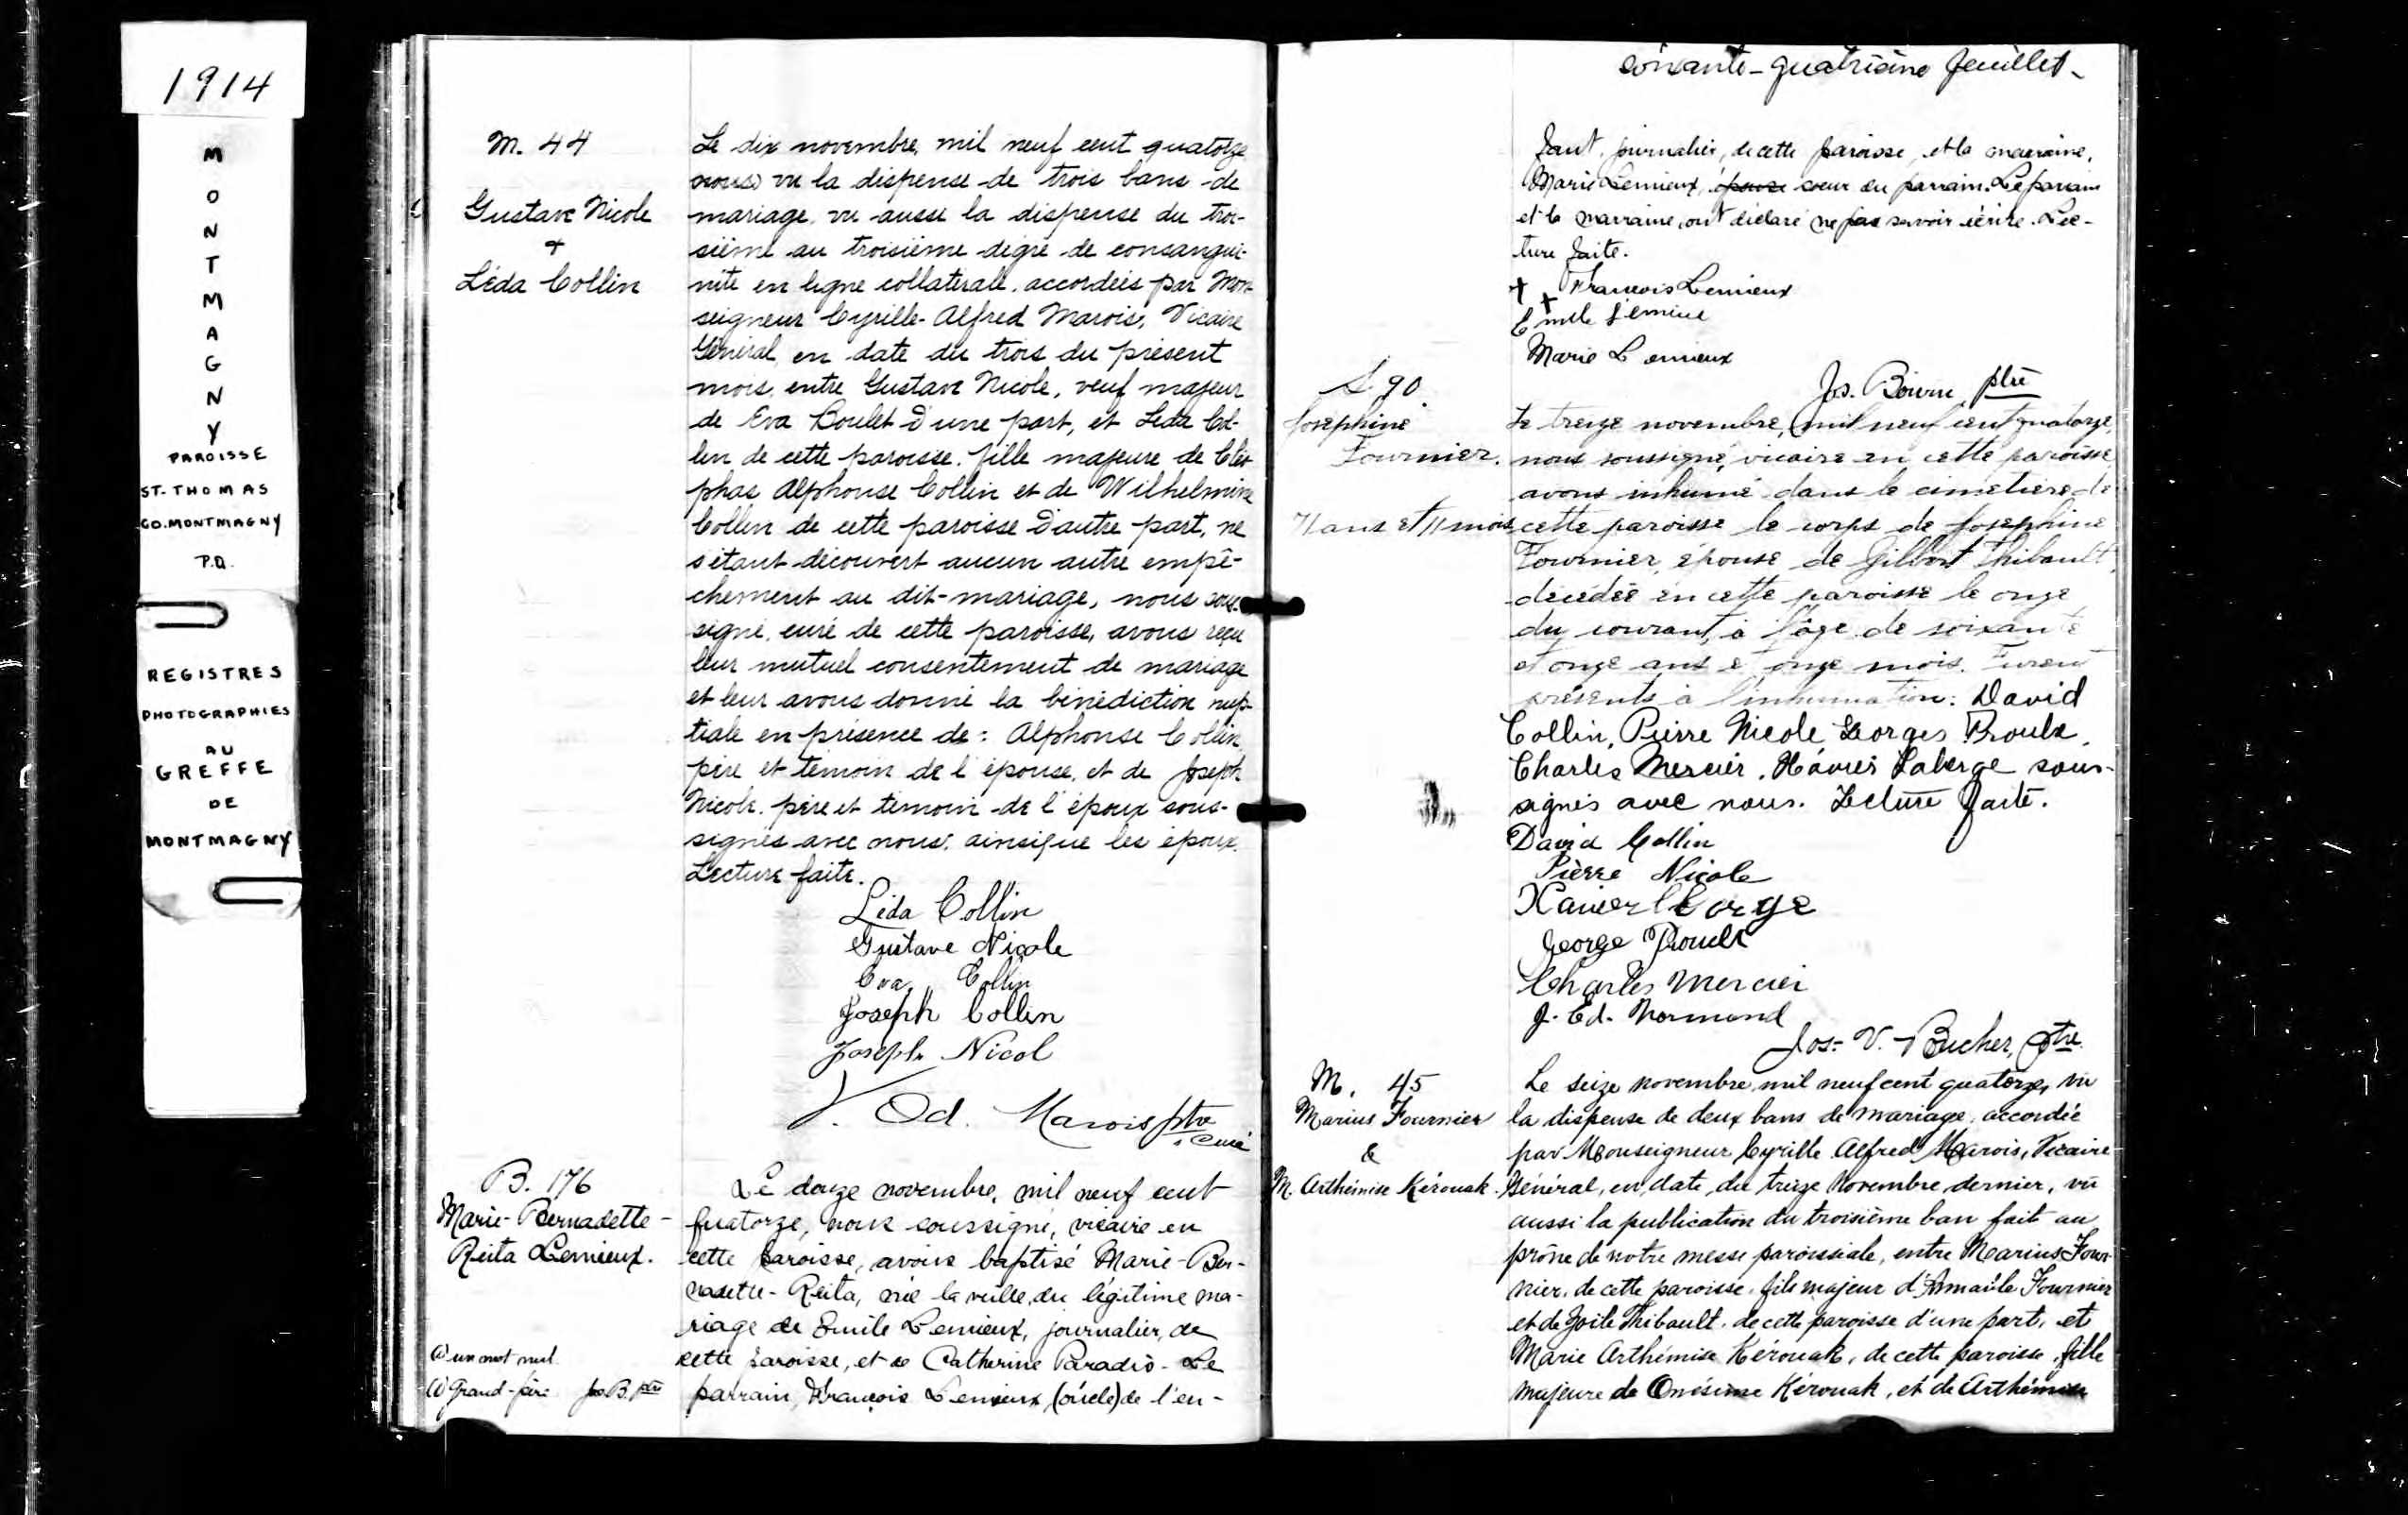 1914
MONTMAGNY
PAROISSE
ST. THOMAS
CO. MONTMAGNY
P.Q.
REGISTRES
PHOTOGRAPHIES
AU
GREFFE
DE
MONTMAGNY
M. 44
Gustave Nicole
+
Léda Collin
Le dix novembre, mil neuf cent quatorze
nous vu la dispense de trois bans de
mariage, vu aussi la dispense du troi-
sième au troisième degré de consangui-
nité en ligne collatérale, accordées par Mon-
seigneur Cyrille-Alfred Marois, Vicaire
Général, en date du trois du présent
mois, entre Gustave Nicole, veuf majeur
de Eva Boulet d'une part, et Leda Col-
lin de cette paroisse, fille majeure de Cléo-
phas Alphonse Collin et de Wilhelmine
Collin de cette paroisse d'autre part, ne
s'étant découvert aucun autre empê-
chement au dit-mariage, nous sous-
signé, curé de cette paroisse, avons reçu
leur mutuel consentement de mariage
et leur avons donné la bénédiction nup-
tiale en présence de: Alphonse Collin,
père et témoin de l'épouse, et de Joseph
Nicole, père et témoin de l'époux sous-
signés avec nous, ainsique les époux.
Lecture faite.
Léda Collin
Gustave Nicole
Eva Collin
Joseph Collin
Joseph Nicol
V. Od. Marois ptre
curé
B. 176
Marie-Bernadette-
Reita Lemieux.
Le douze novembre, mil neuf cent
quatorze, nous soussigné, vicaire en
cette paroisse, avons baptisé Marie-Ber-
nadette-Reita, née la veille, du légitime ma-
riage de Emile Lemieux, journalier, de
cette paroisse, et de Catherine Paradis. Le
parrain, François Lemieux, (oncle) de l'en-
(a) un mot nul.
(1) Grand-père Jos B. ptre
soixante-quatrième feuillet-
fant, journalier, de cette paroisse, et la marraine,
Marie Lemieux, épouse soeur du parrain. Le parrain
et la marraine, ont déclaré ne pas savoir écrire. Lec-
ture faite.
+ + François Lemieux
Emile Lemieu
Marie Lemieux
Jos. ptre
S. 90.
Josephine
Fournier.
71 ans et 11 mois
Le treize novembre, mil neuf cent quatorze,
nous soussigné, vicaire en cette paroisse,
avons inhumé dans le cimetière de
cette paroisse le corps de Josephine
Fournier, épouse de Gilbert Thibault,
décédée en cette paroisse le onze
du courant, à l'âge de soixante
et onze ans et onze mois. Furent
présents à l'inhumation: David
Collin, Pierre Nicole, Georges Proulx,
Charles Mercier, Xavier Laberge sous-
signés avec nous. Lecture faite.
David Collin
Pierre Nicole
Xavier
George Proulx
Charles Mercier
J. Ed. Normand
Jos. V. Bucher, ptre.
M. 45
Marius Fournier
&
M. Arthémise Kérouak.
Le seize novembre mil neuf cent quatorze, vu
la dispense de deux bans de mariage, accordée
par Monseigneur Cyrille Alfred Marois, Vicaire
Général, en date du treize Novembre dernier, vu
aussi la publication du troisième ban fait au
prône de notre messe paroissiale, entre Marius Four-
nier, de cette paroisse, fils majeur d'Amable Fournier
et de Zoïle Thibault, de cette paroisse d'une part, et
Marie Arthémise Kérouak, de cette paroisse, fille
majeure de Onésime Kérouak, et de Arthémise